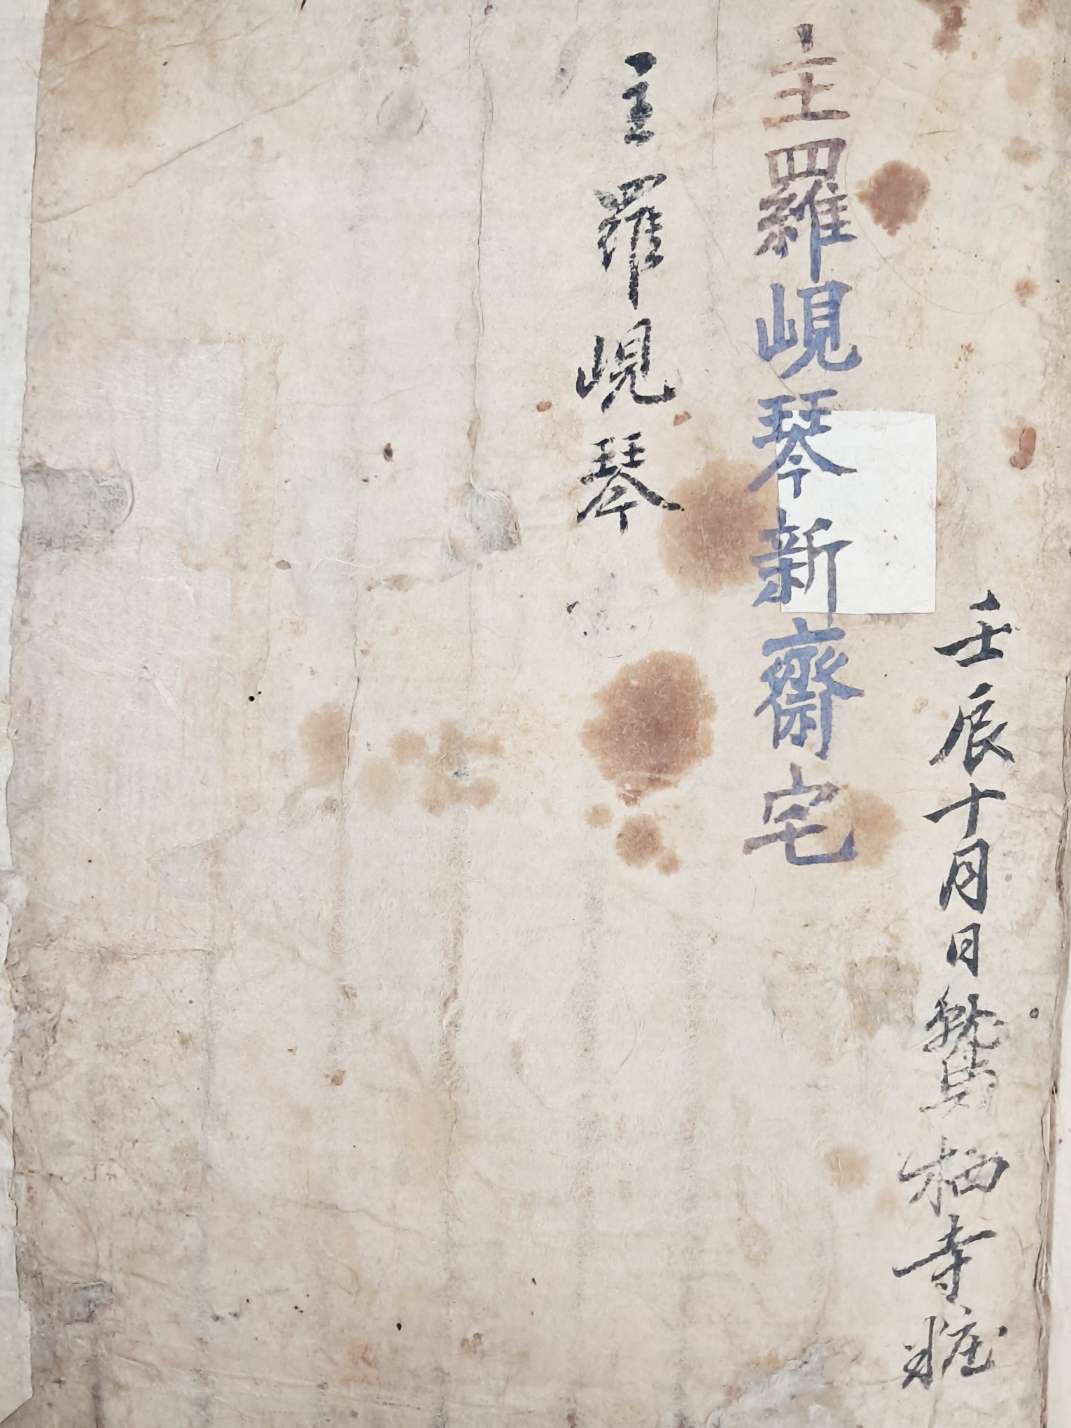 壬辰十月日鷲栖寺粧
主羅峴琴新齋宅
主羅峴琴